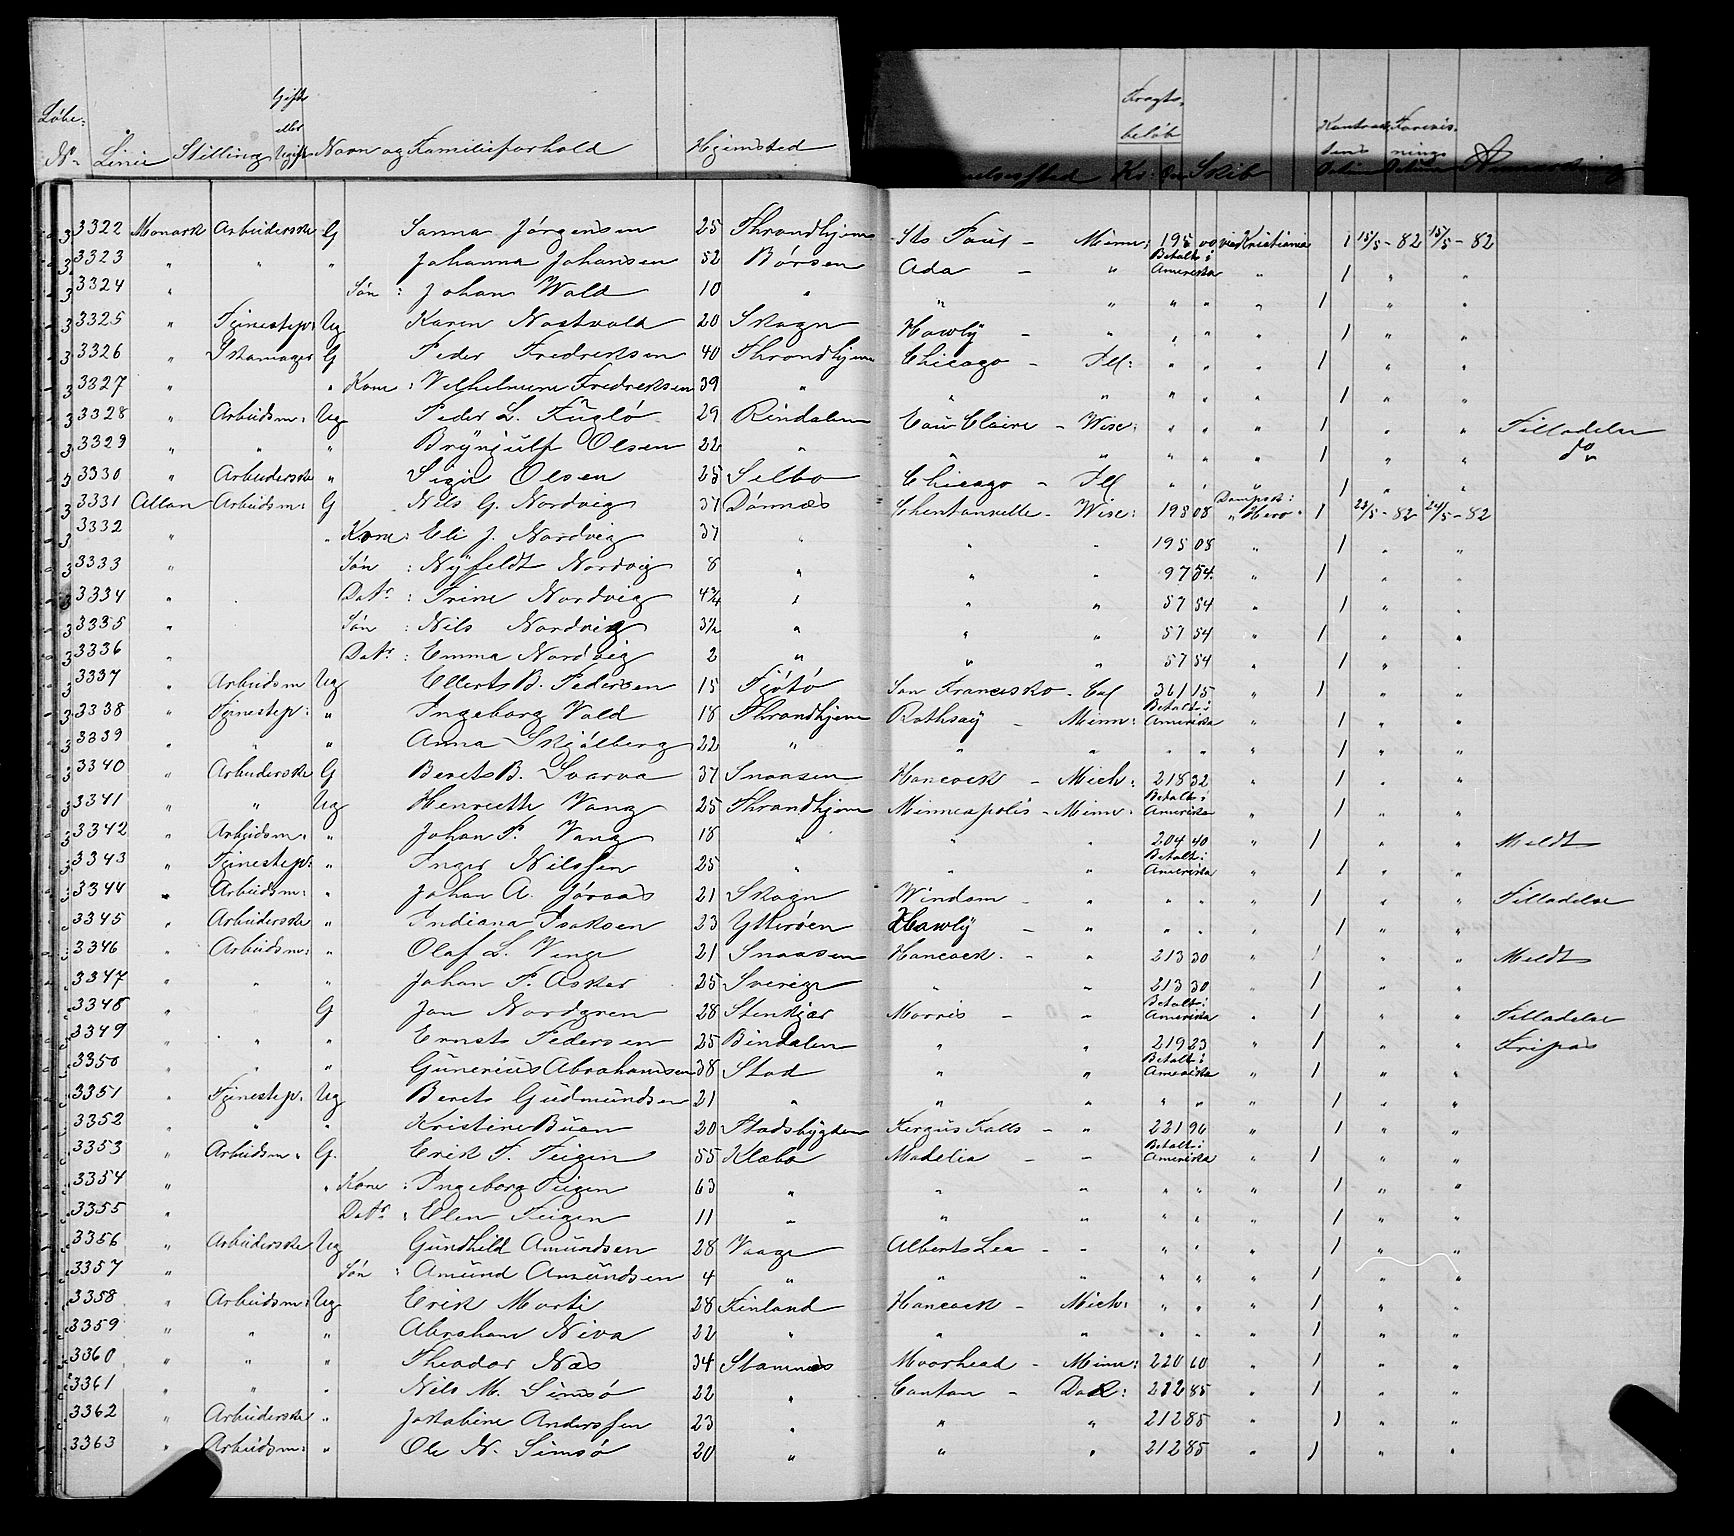 Löbe: Gifte Fragts-
eller beløb Kontrak- Forevis-
No Linie Stilling Ugift Navn og Familieforhold Hjemsted Kr: Skib dens nings Anmærkning
3322 Monark Arbeiderske G Sanna Jørgensen 25 Throndhjem Sts Paul - Minn: 195 00 via Kristiania 1 15/5 - 82 15/5 - 82
3323 " " " Johanna Johansen 52 Børsen Ada - " Betalt i Amerika " 1 " "
3324 " Søn: Johan Wold 10 " " " " " " 1 " "
3325 " Tjenestep: Ug Karen Nostvold 20 Skogn Hawly - " " " " 1 " "
3326 " Skomager G Peder Fredriksen 40 Throndhjem Chicago - Ill: " " " 1 " "
3327 " " Kone: Vilhelmine Fredriksen 39 " " " " " " 1 " "
3328 " Arbeidsm: Ug Peder L. Fuglö 29 Rindalen Eau Claire - Wisc: " " " 1 " " Tilladelse
3329 " " " Brynjulf Olsen 22 " " " " " " 1 " " do
3330 " Arbeiderske " Sigri Olsen 25 Selbo Chicago - Ill " " " 1 " "
3331 Allan Arbeidsm: G Nils G. Nordvig 37 Dønnæs - Wisc: 195 08 Dampsk: "Hero" 1 23/5 - 82 24/5 - 82
3332 " " Kone: Eli J. Nordvig 37 " " " 195 08 " 1 " "
3333 " Søn: Nyfeldt Nordvig 8 " " " 97 54 " 1 " "
3334 " Datr: Trine Nordvig 4¾ " " " 57 54 " 1 " "
3335 " Søn: Nils Nordvig 3½ " " " 57 54 " 1 " "
3336 " Datr: Emma Nordvig 2 " " " 57 54 " 1 " "
3337 " Arbeidsm Ug Ellerts B. Pedersen 15 Tjøtø San Francisko - Cal 361 15 " 1 " "
3338 " Tjenestep: " Ingeborg Vold 18 Throndhjem Rothsay - Minn: Betalt i Amerika " 1 " "
3339 " " " Anna Skjølberg 22 " " " " " " 1 " "
3340 " Arbeiderske G Berets B. Svarva 37 Snaasen Hancock - Mich: 218 32 " 1 " "
3341 " " Ug Henriette Vang 25 Throndhjem Minneapolis - Minn: Betalt i Amerika " 1 " "
3342 " Arbeidsm: " Johan P. Vang 18 " " " 204 40 " 1 " " Meldt
3343 " Tjenestep: " Inger Nilssen 25 " " " Betalt i Amerika " 1 " "
3344 " Arbeidsm: " Johan A. 21 Skogn Windom - " " " " 1 " " Tilladelse
3345 " Arbeiderske " Indiana Isaksen 23 Ytterøen Hawly - " " " " 1 " "
3346 " Arbeidsm: " Olaf L. Vinge 21 Snaasen Hancock. - " 213 30 " 1 " " Meldt
3347 " " " Johan P. Asker 25 Sverige " " 213 30 " 1 " "
3348 " " G Jon Nordgren 28 Stenkjær Morris - " Betalt i Amerika " 1 " " Tilladelse
3349 " " " Ernst Pedersen 25 Bindalen " " 219 23 " 1 " " Fripas
3350 " " " Gunerius Abrahamsen 38 Stod " " Betalt i Amerika " 1 " "
3351 " Tjenestep: Ug Berets Gudmundsen 21 " " " " " " 1 " "
3352 " " " Kristine Buan 20 Stadsbygden Fergus Falls - " 221 96 " 1 " "
3353 " Arbeidsm: G. Erik P. Teigen 55 Klæbo Madelia - " Betalt i Amerika " 1 " "
3354 " " Kone: Ingeborg Teigen 63 " " " " " " 1 " "
3355 " Datr: Elen Teigen 11 " " " " " " 1 " "
3356 " Arbeiderske Ug Gundhild Amundsen 28 Vaage Alberts Lea - " " " " 1 " "
3357 " Søn: Amund Amundsen 4 " " " " " " 1 " "
3358 " Arbeidsm: Ug Erik Marti 28 Finland Hancock - Mich: " " " 1 " "
3359 " " " Abraham Niva 22 " " " " " " 1 " "
3360 " " " Theodor Næs 34 Stamnæs Moorhead - Minn: 220 60 " 1 " "
3361 " " " Nils M. Simsø 22 " Canton - Dak: 212 85 " 1 " "
3362 " Arbeiderske " Jakobine Anderssen 23 " " " 212 85 " 1 " "
3363 " Arbeidsm: " Ole N. Simsø 20 " " " 212 85 " 1 " "